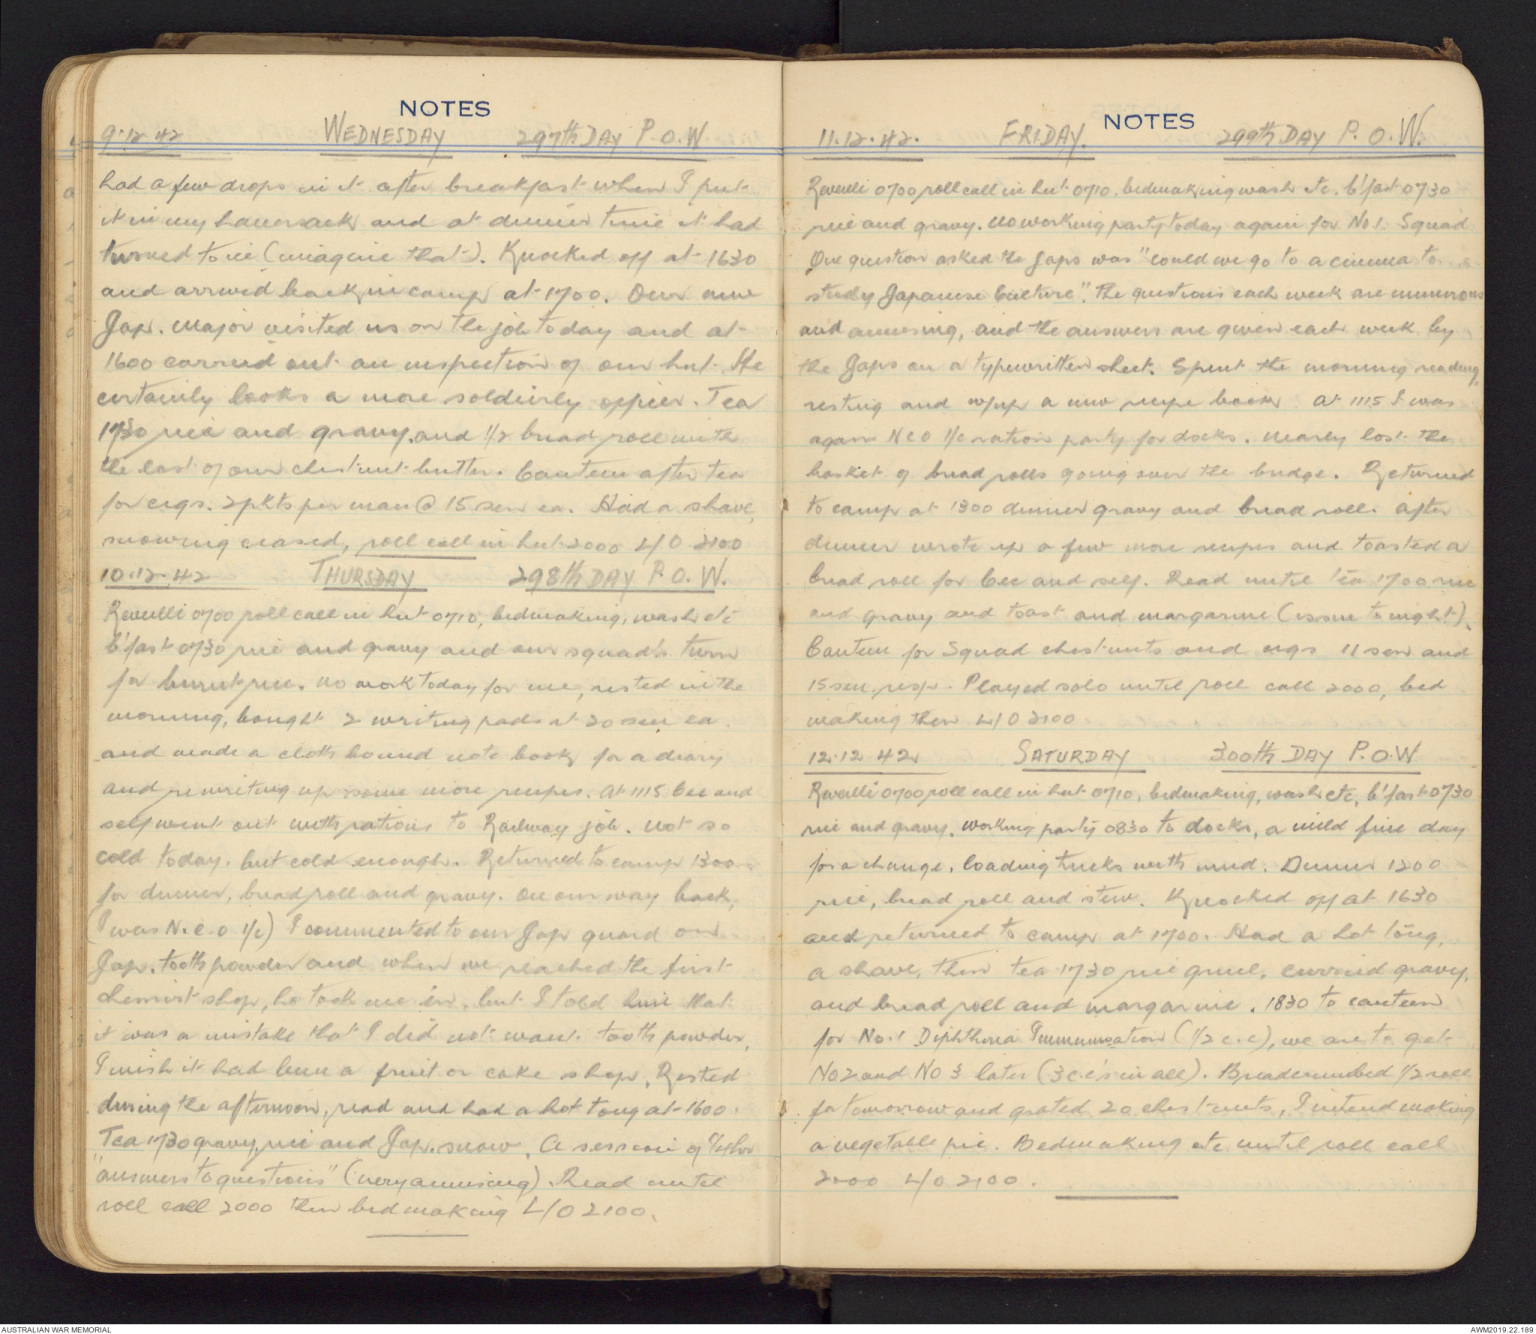 NOTES
9.12.42 WEDNESDAY 297th DAY P.O.W.
had a few drops in it after breakfast when I put
it in my haversack and at dinner time it had
turned to ice (imagine that). Knocked off at 1630
and arrived back in camp at 1700. Our new
Jap. Major visited us on the job today and at
1600 carried out an inspection of our hut. He
certainly looks a more soldierly officer. Tea
1730 rice and gravy, and 1/2 bread roll with
the last of our chestnut butter. Canteen after tea
for cigs. 2 pkts per man @ 15 sen ea. Had a shave,
snowing ceased, roll call in hut 2000 L/O 2100
10.12.42 THURSDAY 298th DAY P.O.W.
Reveilli 0700 roll call in hut 0710, bedmaking, wash etc
b'fast 0730 rice and gravy and our squad's turn
for burnt rice. No work today for me, rested in the
morning, bought 2 writing pads at 20 sen ea.
and made a cloth bound note book for a diary
and rewriting up some more recipes. At 1115 Cec and
self went out with rations to Railway job. Not so
cold today, but cold enough. Returned to camp 1300
for dinner, bread roll and gravy. On our way back,
(I was N.C.O i/c) I commented to our Jap guard on
Jap. tooth powder and when we reached the first
chemist shop, he took me in, but I told him that
it was a mistake that I did not want tooth powder,
I wish it had been a fruit or cake shop. Rested
during the afternoon, read and had a hot tong at 1600.
Tea 1730 gravy, rice and Jap. snow. A session of
"answers to questions" (very amusing). Read until
roll call 2000 then bedmaking L/O 2100.
NOTES
11.12.42. FRIDAY. 299th DAY P.O.W.
Reveilli 0700 roll call in hut 0710, bedmaking wash etc. b'fast 0730
rice and gravy. No working party today again for No 1. Squad
One question asked the Japs was "could we go to a cinema to
study Japanese Culture". The questions each week are numerous
and amusing, and the answers are given each week by
the Japs on a typewritten sheet. Spent the morning reading,
resting and w/up a new recipe book. At 1115 I was
again NCO i/c ration party for docks. Nearly lost the
basket of bread rolls going over the bridge. Returned
to camp at 1300 dinner gravy and bread roll. After
dinner wrote up a few more recipes and toasted a
bread roll for Cec and self. Read until Tea 1700 rice
and gravy and toast and margarine (issue tonight).
Canteen for Squad chestnuts and cigs 11 sen and
15 sen resp. Played solo until roll call 2000, bed
making then L/O 2100
12.12.42 SATURDAY 300th DAY P.O.W
Reveilli 0700 roll call in hut 0710, bedmaking, wash etc, b'fast 0730
rice and gravy. Working party 0830 to docks, a mild fine day
for a change. Loading trucks with mud. Dinner 1200
rice, bread roll and stew. Knocked off at 1630
and returned to camp at 1700. Had a hot tong,
a shave, then tea 1730 rice gruel, curried gravy,
and bread roll and margarine. 1830 to canteen
for No.1 Diphtheria Immunisation (1/2 c.c), we are to get
No 2 and No 3 later (3 c.c's in all). Breadcrumbed 1/2 roll
for tomorrow and grated 20 chestnuts, I intend making
a vegetable pie. Bedmaking etc until roll call
2000 L/O 2100.
AUSTRALIAN WAR MEMORIAL
AWM2019.22.189